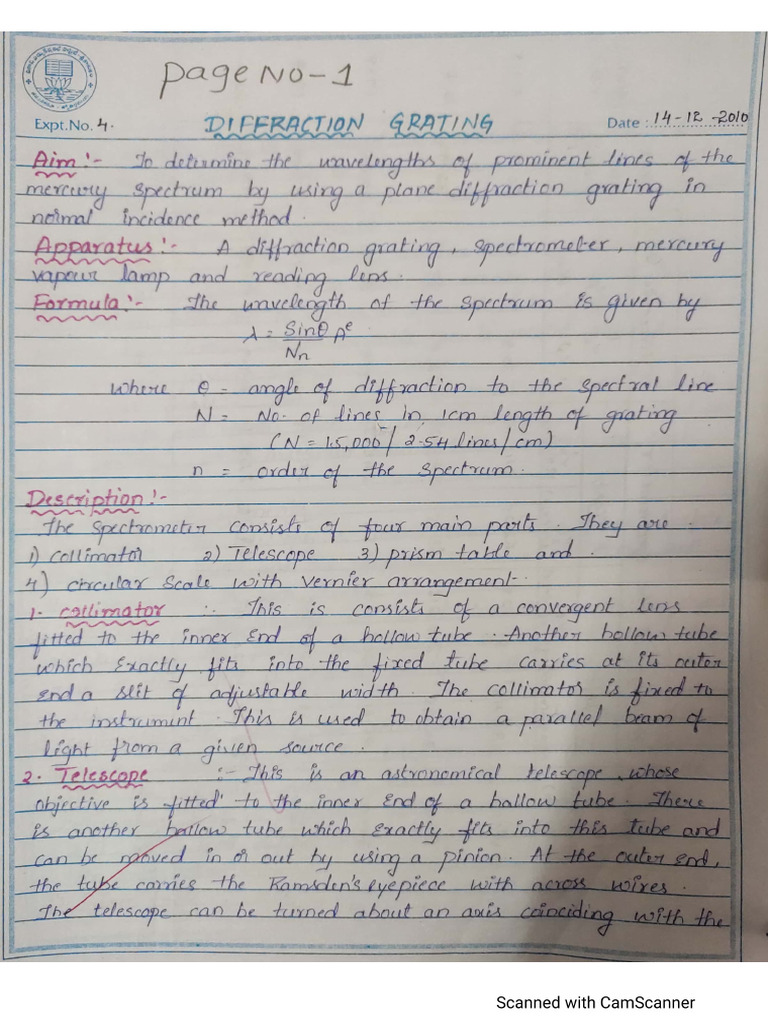 Page No-1
Expt.No. 4.
DIFFRACTION GRATING
Date : 14-12-2010
Aim :- To determine the wavelengths of prominent lines of the
mercury spectrum by using a plane diffraction grating in
normal incidence method.
Apparatus :- A diffraction grating, spectrometer, mercury
vapour lamp and reading lens.
Formula :- The wavelength of the spectrum is given by
λ = Sinθ/Nn Aº
where θ = angle of diffraction to the spectral line
N = No. of lines in 1cm length of grating
(N = 15,000 / 2.54 lines/cm)
n = order of the spectrum.
Description :-
The spectrometer consists of four main parts. They are
1) collimator 2) Telescope 3) prism table and
4) circular scale with vernier arrangement.
1. collimator :- This is consists of a convergent lens
fitted to the inner end of a hollow tube. Another hollow tube
which exactly fits into the fixed tube carries at its outer
end a slit of adjustable width. The collimator is fixed to
the instrument. This is used to obtain a parallel beam of
light from a given source.
2. Telescope :- This is an astronomical telescope, whose
objective is fitted to the inner end of a hallow tube. There
is another hallow tube which exactly fits into this tube and
can be moved in or out by using a pinion. At the outer end,
the tube carries the Ramsden's eyepiece with across wires.
The telescope can be turned about an axis coinciding with the
Scanned with CamScanner